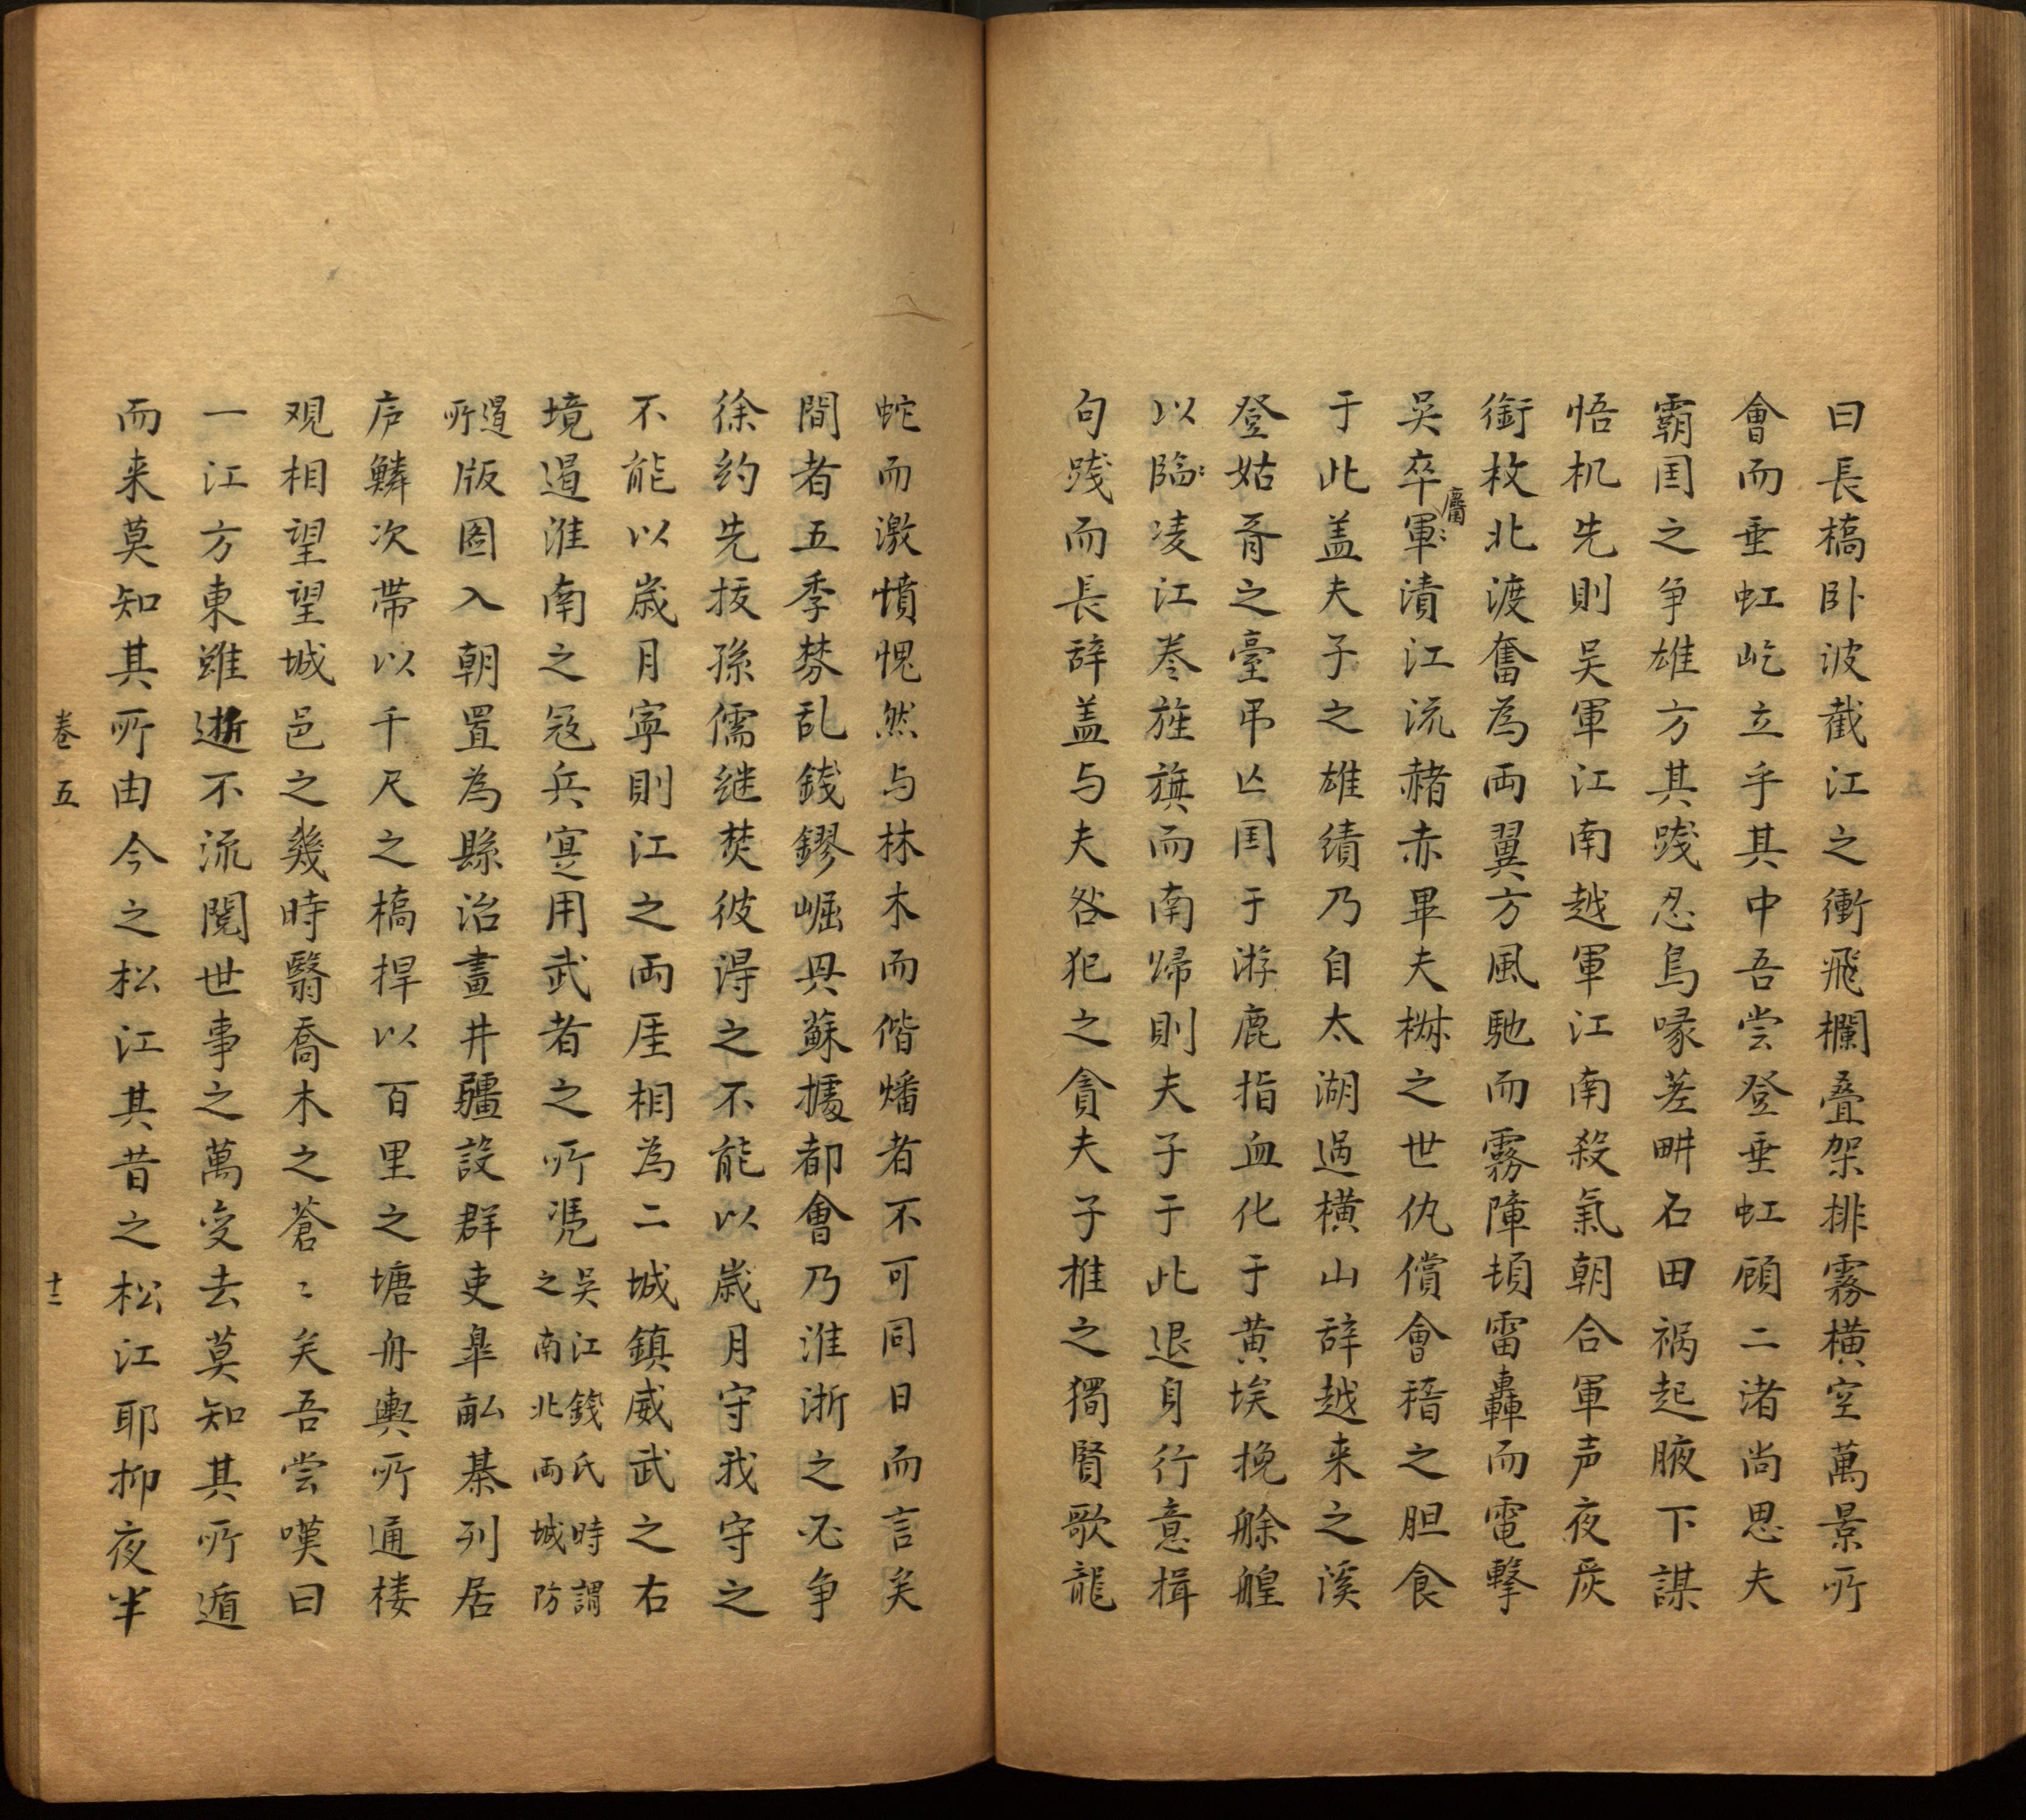 曰長橋卧波截江之衝飛欄疊架排霧橫空萬景所
會而垂虹屹立乎其中吾尝登垂虹顧二渚尚思夫
霸国之争雄方其踐忍鳥喙差畊石田祸起腋下謀
悟机先則吴軍江南越軍江南殺氣朝合軍声夜厌
銜枚北渡奮為両翼方風馳而霧障頓雷轟而電擊
吴卒軍鏖漬江流赭赤畢夫椒之世仇償會稽之胆食
于此盖夫子之雄績乃自太湖過橫山辞越来之溪
登姑胥之臺弔亾国于游鹿指血化于黄埃挽艅艎
以臨凌江卷旌旗而南歸則夫子于此退身行意揖
句踐而長辞盖与夫咎犯之貪夫子推之獨賢歌龍
蛇而激憤愧然与林木而偕燔者不可同日而言矣
間者五季棼乱錢鏐崛㒷蘇據都會乃淮浙之必争
徐約先拔孫儒继焚彼得之不能以歳月守我守之
不能以歳月寧則江之両厓相為二城鎮威武之右
境遏淮南之冦兵寔用武者之所凴吴江錢氏時謂之南北両城防
遏所版圖入朝置為縣治畫井疆設群吏皐畆棊列居
庐鱗次帶以千尺之橋捍以百里之塘舟輿所通楼
观相望望城邑之幾時翳喬木之蒼〻矣吾尝嘆曰
一江方東雖逝不流閲世事之萬变去莫知其所遁
而来莫知其所由今之松江其昔之松江耶抑夜半
卷五
十二